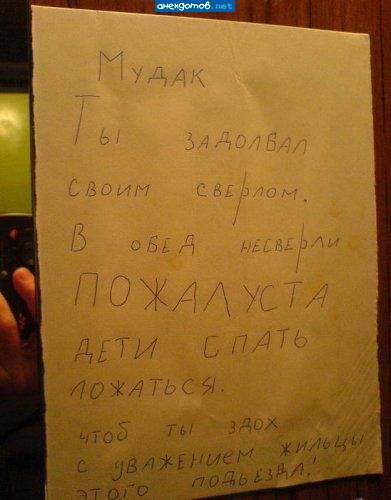 анекдотов.net
Мудак
Ты задолбал
своим сверлом.
В обед несверли
ПОЖАЛУСТА
дети спать
ложаться.
чтоб ты здох
с уважением жильцы
этого подьезда!